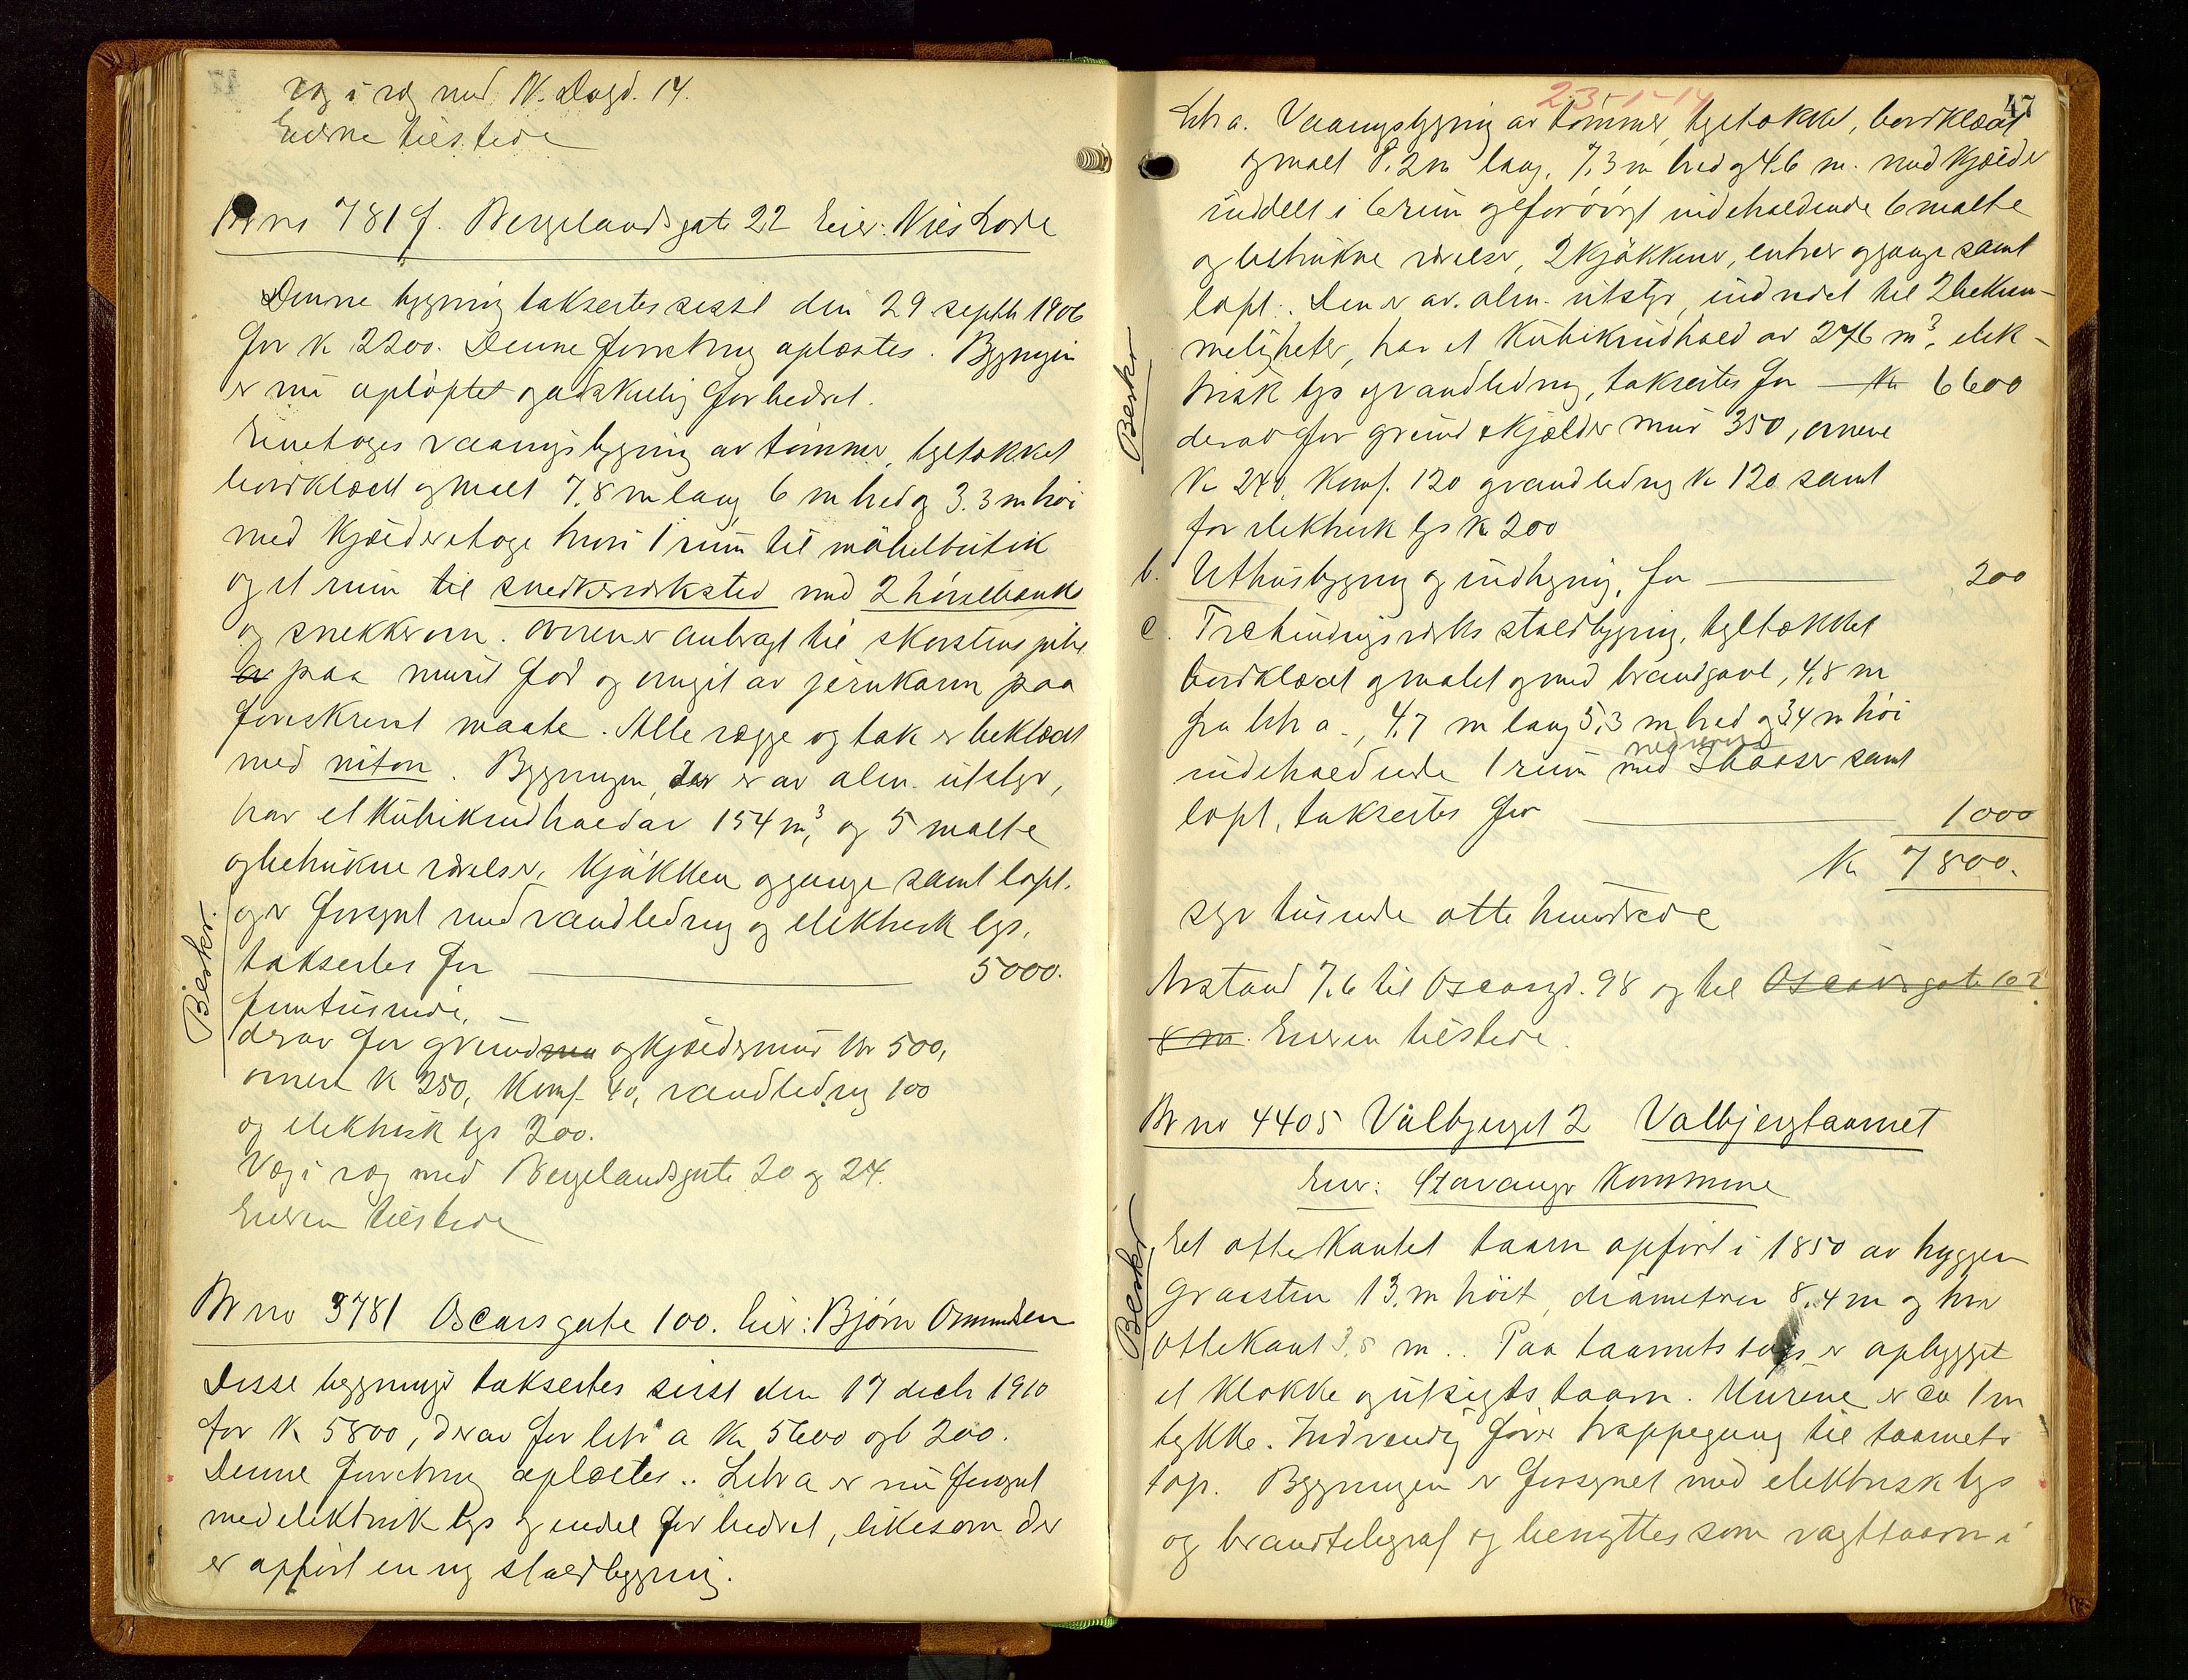 væg i væg med N. Dagd. 14.
Eierne tilstede
Br no 781 f. Bergelandsgate 22 Eier: Niels Lode
Denne bygning taksertes sisst den 29 septbr 1906
for kr 2200. Denne forretning oplæstes. Bygningen
er nu opløftet og adskillig forbedret.
Eenetages vaaningsbygning av tømmer, tegltækket
bordklædt og malt 7,8 m lang 6 m bred og 3.3 m høi
med kjælderetage hvori 1 rum til møbelbutik
og et rum til snedkerverksted med 2 høvelbænk
og snekkerovn. Ovnen er anbragt til skorstenspibe
av paa muret fod og omgit av jernkarm paa
foreskrevet maate. Alle vægge og tak er beklædt
med niton. Bygningen, der er av alm. utstyr,
har et kubikindhold av 154 m³, og 5 malte
og betrukne værelser, kjøkken og gange samt loft,
og er forsynt med vandledning og elektrisk lys,
taksertes for 5000.
femtusinde,
derav for grundmu og kjældermur kr 500,
ovnene kr 250, komf. 40, vandledning 100
og elektrisk lys 200.
Væg i væg med Bergelandsgate 20 og 24.
Eieren tilstede
Beskr.
Br no 3781 Oscarsgate 100. Eier: Bjørn Ommundsen
Disse bygninger taksertes sisst den 17 decbr 1910
for kr 5800, derav for litr a kr 5600 og b 200.
Denne forretning oplæstes.. Litr a er nu forsynt
med elektrisk lys og endel forbedret, likesom der
er opført en ny staldbygning.
23-1-14
47
Litr a. Vaaningsbygning av tømmer, tegltækket, bordklædt
og malt 8.2 m lang, 7,3 m bred og 4.6 m. med kjælder
inddelt i 6 rum og forøvrigt indeholdende 6 malte
og betrukne værelser, 2 kjøkkener, entreer og gange samt
loft. Den er av alm. utstyr, indredet til 2 bekvem-
meligheter, har et kubikindhold av 276 m³, elek-
trisk lys og vandledning, taksertes for kr 6600
derav for grund & kjælder mur 350, ovnene
kr 240, komf. 120 og vandledning kr 120 samt
for elektrisk lys kr 200
b. Uthusbygning og indhegning, for 200
c. Træbindingsverks staldbygning, tegltækket
bordklædt og malet og med brandgavl, 4,8 m
fra litr a, 4,7 m lang 5,3 m bred og 3,4 m høi
indeholdende 1 rum med 3 baaser samt
loft, taksertes for 1000
kr 7800.
syv tusinde otte hundrede
Avstand 7,6 til Oscarsgd. 98 og til Oscarsgate 102
8 m. Eieren tilstede.
Beskr
Br no 4405 Valbjerget 2 Valbjergtaarnet
Eier: Stavanger Kommune
Et ottekantet taarn opført i 1850 av huggen
graasten 13. m høit, diametren 8.4 m og hver
ottekant 3,8 m.. Paa taarnets top er opbygget
et klokke og utsigts taarn. Murene er ca 1 m
tykke. Indvendig fører trappegang til taarnets
top. Bygningen er forsynet med elektrisk lys
og brandtelegraf og benyttes som vagttaarn i
Beskr